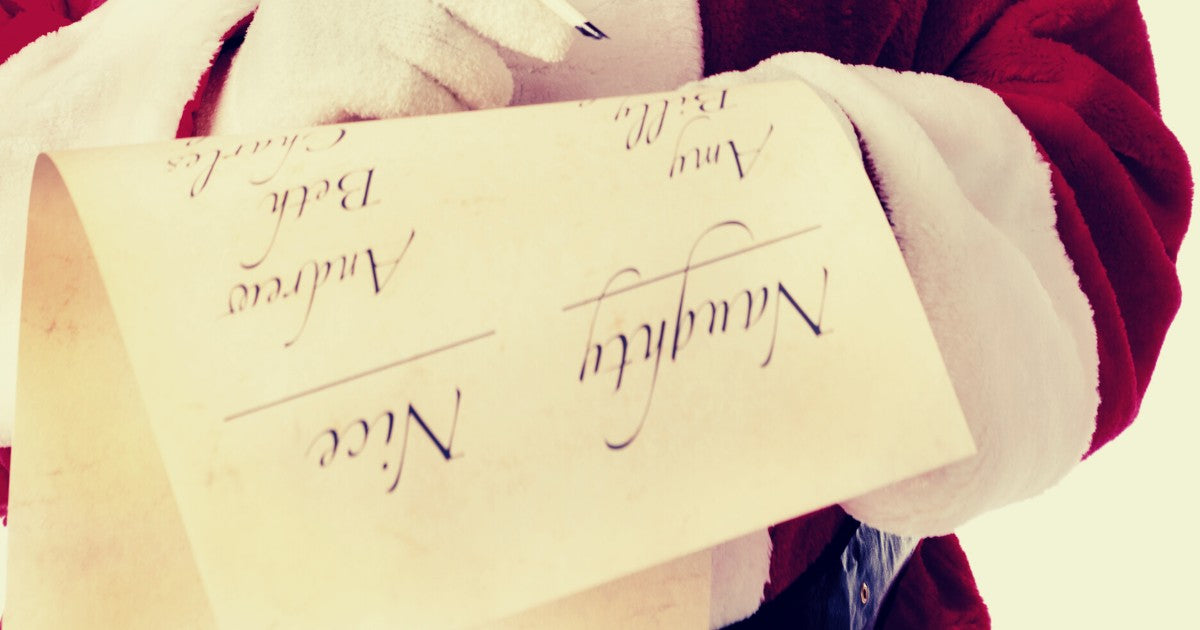 Naughty
Amy
Billy
Nice
Andrew
Beth
Charles